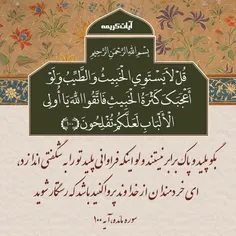 آیات کریمه
بِسْمِ اللَّهِ الرَّحْمَنِ الرَّحِيمِ
قُل لَّا يَسْتَوِي الْخَبِيثُ وَالطَّيِّبُ وَلَوْ
أَعْجَبَكَ كَثْرَةُ الْخَبِيثِ فَاتَّقُوا اللَّهَ يَا أُولِي
الْأَلْبَابِ لَعَلَّكُمْ تُفْلِحُونَ ﴿١٠٠﴾
بگو پلید و پاک برابر نیستند ولو اینکه فراوانی پلید تو را به شگفتی اندازد،
ای خردمندان از خداوند پروا کنید باشد که رستگار شوید
سوره مائده، آیه ۱۰۰